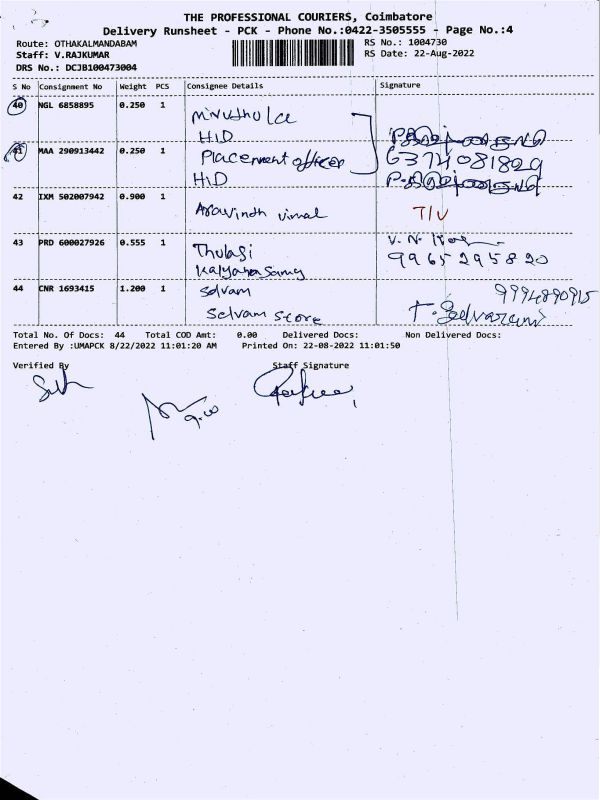 THE PROFESSIONAL COURIERS, Coimbatore
Delivery Runsheet - PCK - Phone No.:0422-3505555 - Page No.:4
Route: OTHAKALMANDABAM RS No.: 1004730
Staff: V.RAJKUMAR RS Date: 22-Aug-2022
DRS No.: DCJB100473004
S No Consignment No Weight PCS Consignee Details Signature
40 NGL 6858895 0.250 1
HID
41 MAA 290913442 0.250 1 Placement officer 6374081829
HID
42 IXM 502007942 0.900 1 Aravindh vimal T/V
43 PRD 600027926 0.555 1 Thulasi V. N.
Kalyanasamy 9965295820
44 CNR 1693415 1.200 1 Selvam 9994890915
Selvam Store T. Selvarani
Total No. Of Docs: 44 Total COD Amt: 0.00 Delivered Docs: Non Delivered Docs:
Entered By :UMAPCK 8/22/2022 11:01:20 AM Printed On: 22-08-2022 11:01:50
Verified By Staff Signature
9.00